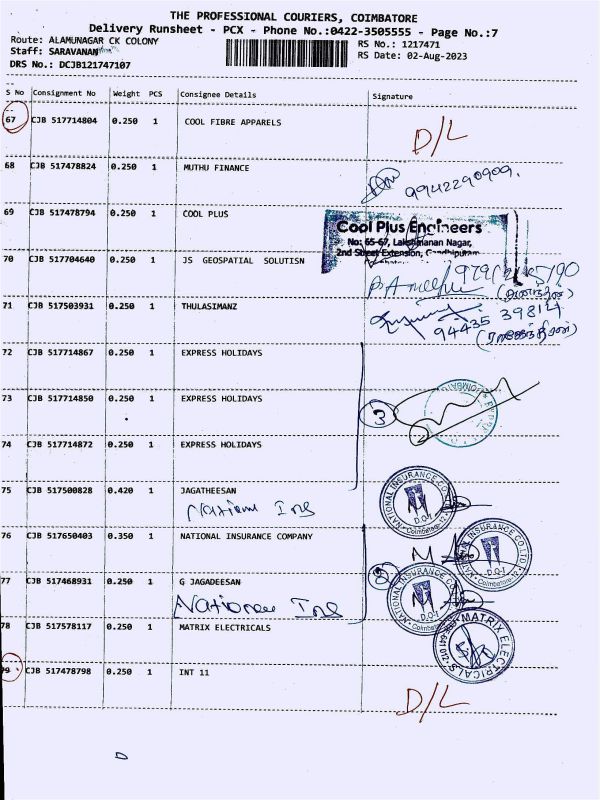 THE PROFESSIONAL COURIERS, COIMBATORE
Delivery Runsheet - PCX - Phone No.:0422-3505555 - Page No.:7
Route: ALAMUNAGAR CK COLONY
Staff: SARAVANAN
DRS No.: DCJB121747107
RS No.: 1217471
RS Date: 02-Aug-2023
S No Consignment No Weight PCS Consignee Details Signature
67 CJB 517714804 0.250 1 COOL FIBRE APPARELS D/L
68 CJB 517478824 0.250 1 MUTHU FINANCE 9942290909.
69 CJB 517478794 0.250 1 COOL PLUS
Cool Plus Engineers
No: 65-67, Lakshmanan Nagar,
2nd Street Extension, Gandhipuram
70 CJB 517704640 0.250 1 JS GEOSPATIAL SOLUTISN
71 CJB 517503931 0.250 1 THULASIMANZ
94435 39814
72 CJB 517714867 0.250 1 EXPRESS HOLIDAYS
73 CJB 517714850 0.250 1 EXPRESS HOLIDAYS 3
74 CJB 517714872 0.250 1 EXPRESS HOLIDAYS
75 CJB 517500828 0.420 1 JAGATHEESAN
National Ins
NATIONAL INSURANCE CO. D.O-1 Coimbatore-12
76 CJB 517650403 0.350 1 NATIONAL INSURANCE COMPANY
INSURANCE CO.LTD D.O-1 Coimbatore-12
77 CJB 517468931 0.250 1 G JAGADEESAN 2
National Ins
NATIONAL INSURANCE CO. D.O-1 Coimbatore
78 CJB 517578117 0.250 1 MATRIX ELECTRICALS
MATRIX ELECTRICALS
79 CJB 517478798 0.250 1 INT 11 D/L